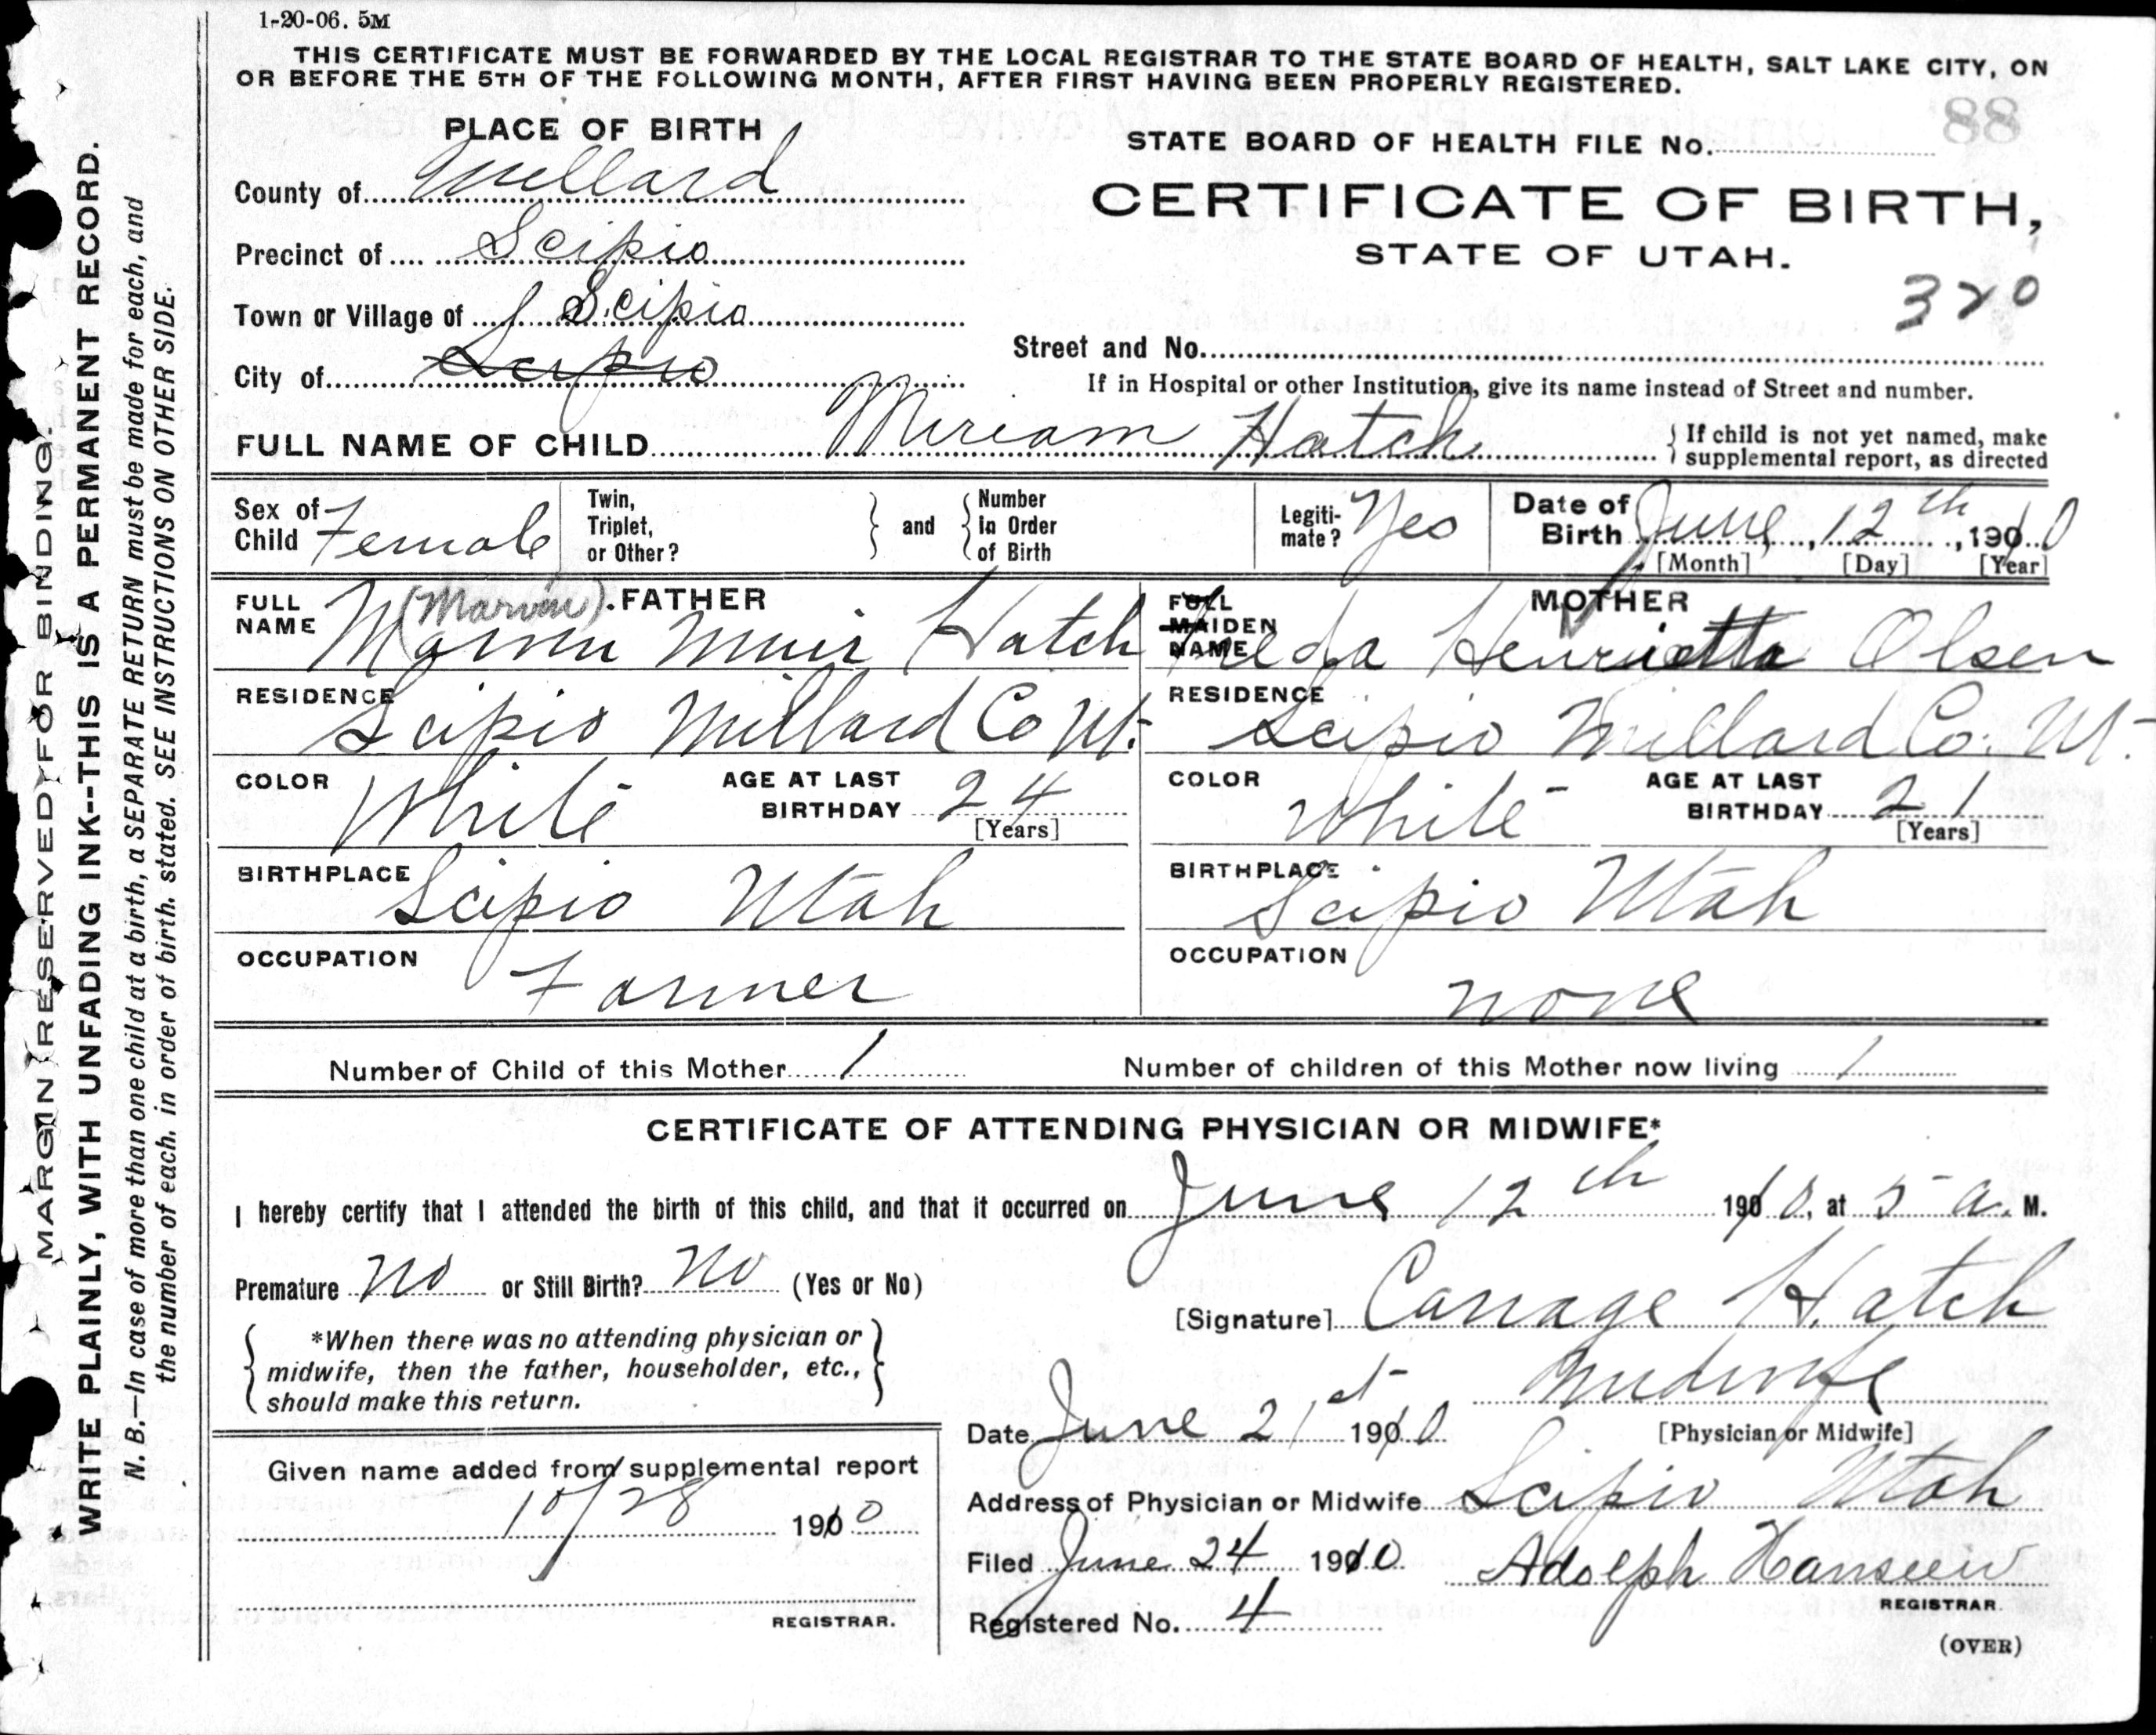 1-20-06. 5M
THIS CERTIFICATE MUST BE FORWARDED BY THE LOCAL REGISTRAR TO THE STATE BOARD OF HEALTH, SALT LAKE CITY, ON
OR BEFORE THE 5TH OF THE FOLLOWING MONTH, AFTER FIRST HAVING BEEN PROPERLY REGISTERED.
88
PLACE OF BIRTH
STATE BOARD OF HEALTH FILE No.
County of Millard
CERTIFICATE OF BIRTH,
Precinct of Scipio
STATE OF UTAH.
320
Town or Village of Scipio
Street and No.
City of Scipio
If in Hospital or other Institution, give its name instead of Street and number.
FULL NAME OF CHILD Miriam Hatch
If child is not yet named, make
supplemental report, as directed
Sex of Child Female
Twin, Triplet, or Other?
and
Number in Order of Birth
Legiti-mate? Yes
Date of Birth June, 12th, 1910
[Month] [Day] [Year]
FATHER
FULL NAME (Marvin) Marvin Muir Hatch
MOTHER
FULL MAIDEN NAME Henrietta Olsen
RESIDENCE Scipio Millard Co Ut.
RESIDENCE Scipio Millard Co. Ut.
COLOR White
AGE AT LAST BIRTHDAY 24 [Years]
COLOR White
AGE AT LAST BIRTHDAY 21 [Years]
BIRTHPLACE Scipio Utah
BIRTHPLACE Scipio Utah
OCCUPATION Farmer
OCCUPATION none
Number of Child of this Mother 1
Number of children of this Mother now living 1
CERTIFICATE OF ATTENDING PHYSICIAN OR MIDWIFE*
I hereby certify that I attended the birth of this child, and that it occurred on June 12th 1910, at 5 a. M.
Premature No or Still Birth? No (Yes or No)
[Signature] Hatch
*When there was no attending physician or
midwife, then the father, householder, etc.,
should make this return.
Midwife
[Physician or Midwife]
Date June 21st 1910
Address of Physician or Midwife Scipio Utah
Given name added from supplemental report
10/28 1910
REGISTRAR.
Filed June 24 1910 Adolph Hansen
REGISTRAR
Registered No. 4
(OVER)
MARGIN RESERVED FOR BINDING.
WRITE PLAINLY, WITH UNFADING INK--THIS IS A PERMANENT RECORD.
N. B.—In case of more than one child at a birth, a SEPARATE RETURN must be made for each, and
the number of each. in order of birth. stated. SEE INSTRUCTIONS ON OTHER SIDE.